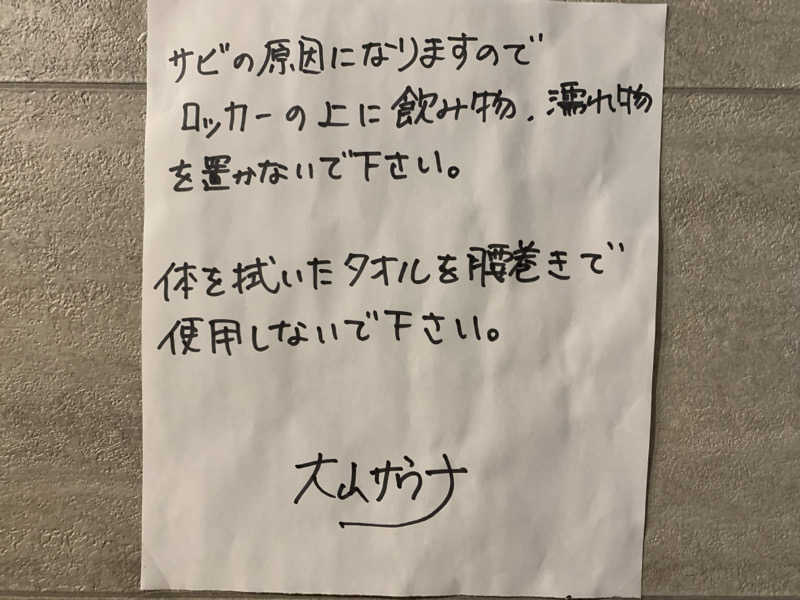 サビの原因になりますので
ロッカーの上に飲み物、濡れ物
を置かないで下さい。
体を拭いたタオルを腰巻きで
使用しないで下さい。
大山サウナ